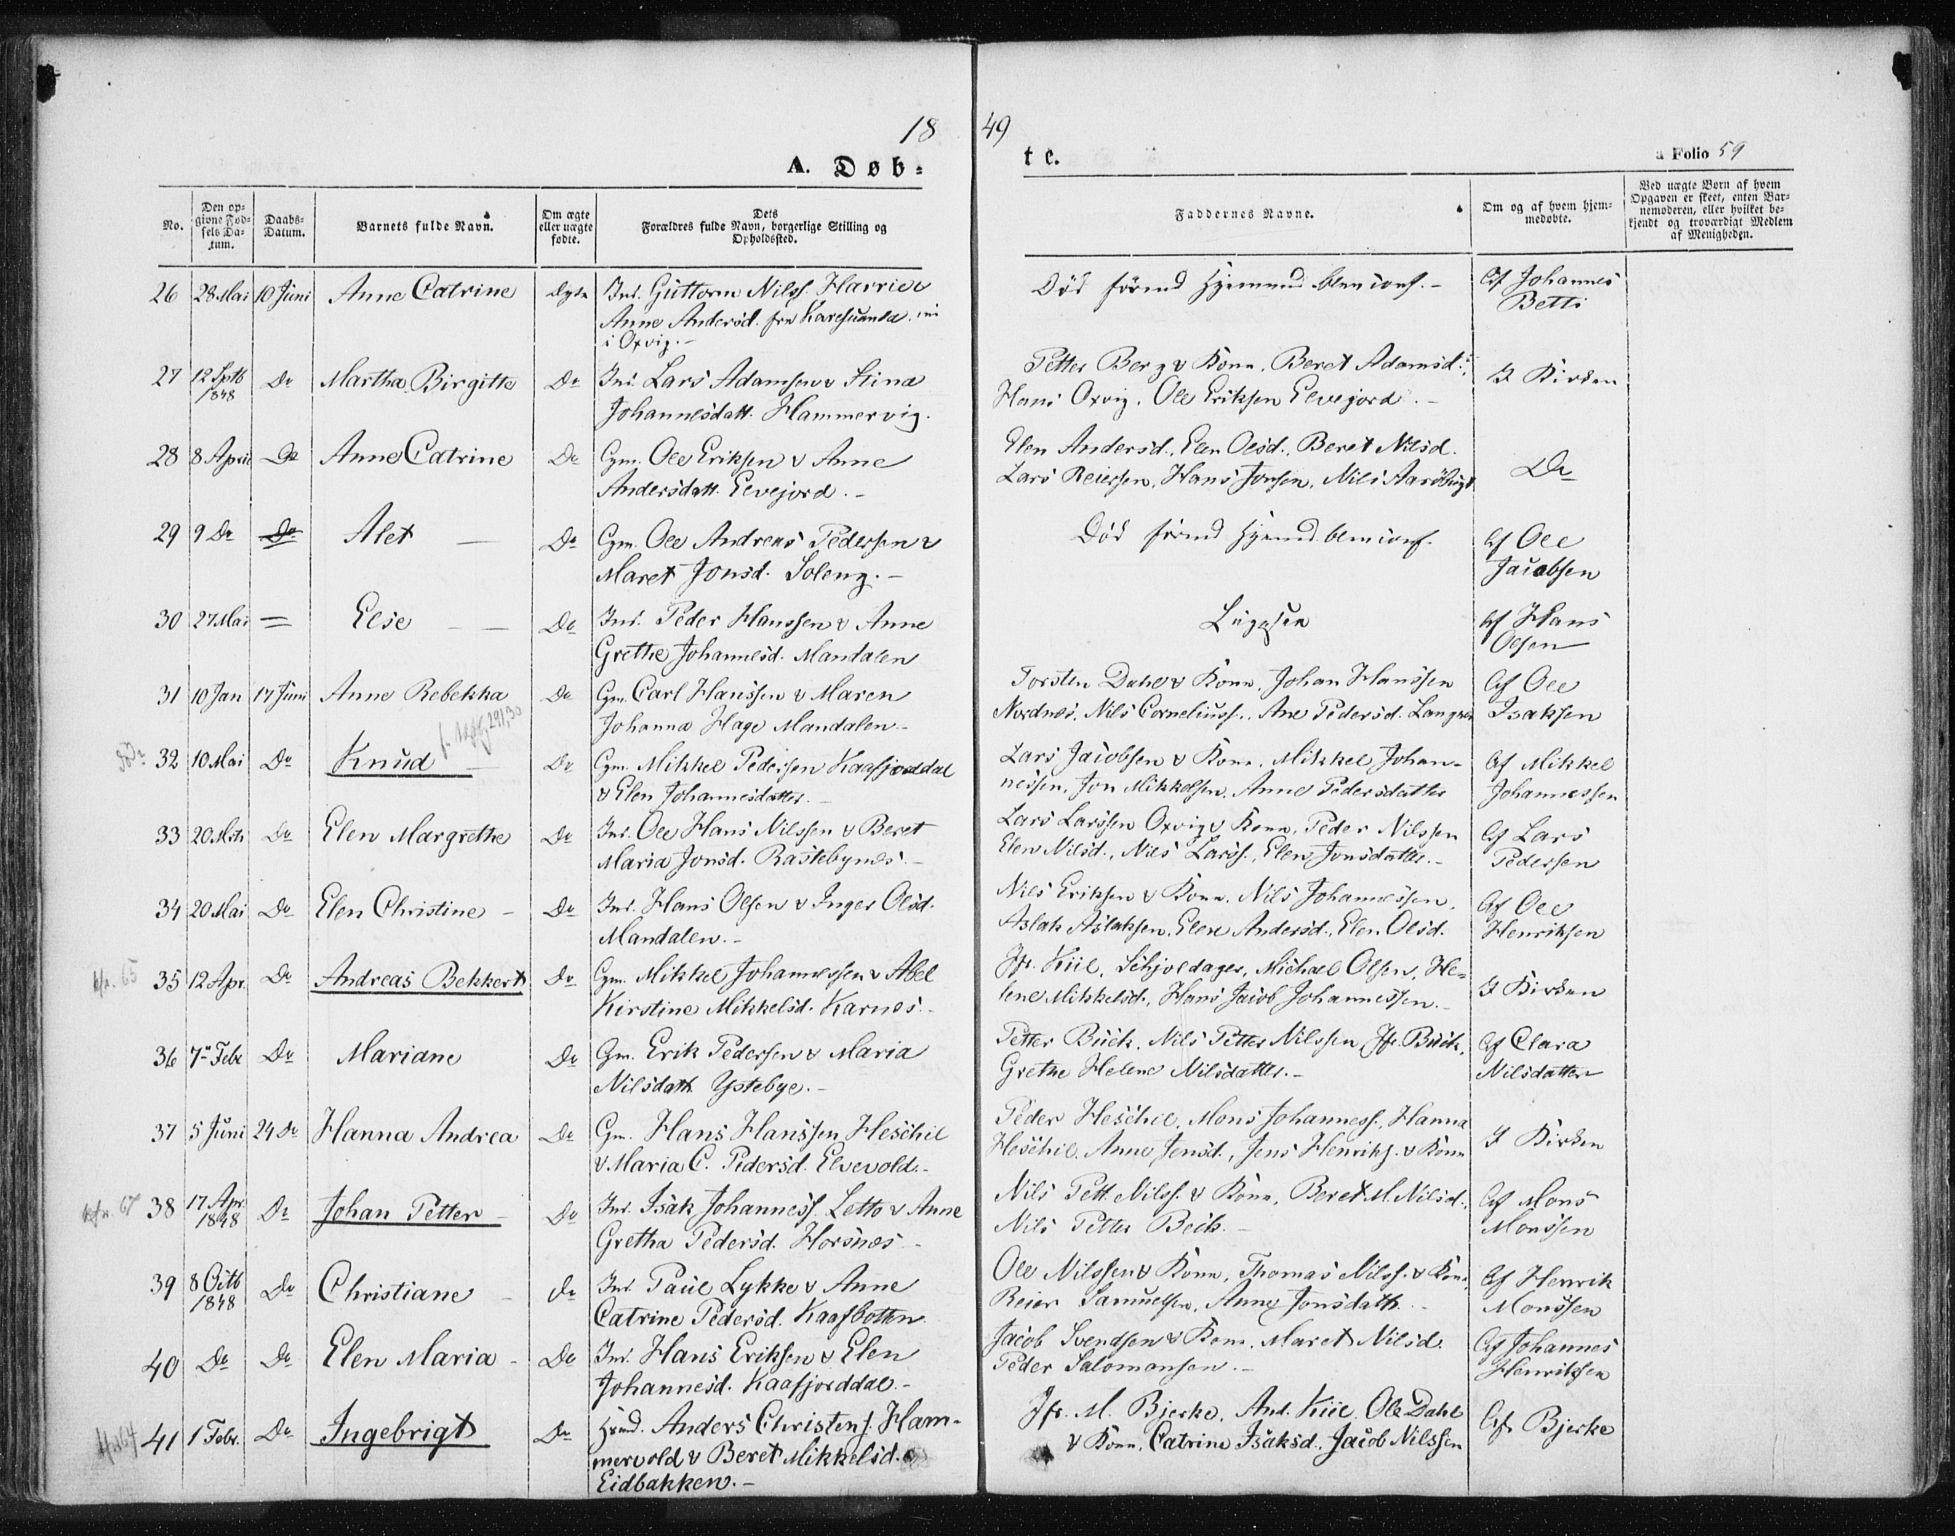 18 49
A. Døb-
te.
a Folio 59
No.
Den op-
givne Fød-
sels Da-
tum.
Daabs-
Datum.
Barnets fulde Navn.
Om ægte
eller uægte
fødte.
Dets
Forældres fulde Navn, borgerlige Stilling og
Opholdssted.
Faddernes Navne.
Om og af hvem hjem-
medøbte.
Ved uægte Børn af hvem
Opgaven er skeet, enten Bar-
nemoderen, eller hvilket be-
kjendt og troværdigt Medlem
af Menigheden.
26 28 Mai 10 Juni Anne Catrine Ind. Guttorm Nilss. Harri &
Anne Andersd. fra Karesuando
i Oxvig.-
Død førend Hjemmed. blev conf.-
Af Johannes
Betti
27 12 Sptb
1848
Do Martha Birgitte Do Ind. Lars Adamsen & Stina
Johannesdatt. Hammervig.
Petter Berg & Kone, Beret Adamsd.,
Hans Oxvig, Ole Eriksen Elvejord.-
I Kirken
28 8 April Do Anne Catrine Do Gm. Ole Eriksen & Anne
Andersdatt. Elvejord.-
Elen Andersd., Elen Olsd., Beret Nilsd.
Lars Reiersen, Hans Jonsen, Nils
Do
29 9 Do Do Alet - Do Gm. Ole Andreas Pedersen &
Maret Jonsd. Soleng.-
Død førend Hjemmed. blev conf.
Af Ole
Jacobsen
30 27 Mai = Else - - Do Ind. Peder Hanssen & Anne
Grethe Johannesd. Mandalen
Af Hans
Olsen
31 10 Jan 17 Juni Anne Rebekka Do Gm. Carl Hanssen & Maren
Johanna Hage Mandalen-
Torsten Dahl & Kone, Johan Hanssen
Nordnes, Nils Corneliuss., Ane Pedersd. Langnes
Af Ole
Isaksen
32 10 Mai Do Knud - Do Gm. Mikkel Pedersen Kaafjorddal
& Elen Johannesdatter.-
Lars Jacobsen & Kone, Mikkel Johan-
nessen, Jon Mikkelsen, Anne Pedersdatter
Af Mikkel
Johannessen
33 20 Mts Do Elen Margrethe Do Ind. Ole Hans Nilssen & Beret
Maria Jonsd. Rastebynes.-
Lars Larssen Oxvig & Kone, Peder Nilssen
Elen Nilsd., Nils Larss., Elen Jonsdatter.-
Af Lars
Pedersen
34 20 Mai Do Elen Christine - Do Ind. Hans Olsen & Inger Olsd.
Mandalen.-
Nils Eriksen & Kone, Nils Johannessen,
Aslak Aslaksen, Elen Andersd., Elen Olsd.
Af Ole
Henriksen
35 12 Apr. Do Andreas Bekkert Do Gm. Mikkel Johannessen & Abel
Kirstine Mikkelsd. Karnes.-
Jfr. Kiil, Schjoldager, Michael Olsen, He-
lene Mikkelsd., Hans Jacob Johannessen.-
I Kirken
36 7de Febr Do Mariane Do Gm. Erik Pedersen & Maria
Nilsdatt. Ystebye.-
Petter Bück, Nils Petter Nilssen Jfr. Bück,
Grethe Helene Nilsdatter.-
Af Clara
Nilsdatter
37 5 Juni 24 Do Hanna Andrea Do Gm. Hans Hanssen Heschil
& Maria C. Pedersd. Elvevold.-
Peder Heschil, Mons Johanness., Hanna
Heschil, Anne Jensd., Jens Henriks. & Kone
I Kirken
38 17 Apr
1848
Do Johan Petter - Do Ind. Isak Johanness. Letto & Anne
Gretha Pedersd. Horsnes -
Nils Pett. Nilss. & Kone, Beret M. Nilsd.,
Nils Petter Beck.-
Af Mons
Monssen
39 8 Octb
1848
Do Christiane - Do Ind. Paul Lykke & Anne
Catrine Pedersd. Kaafbotten
Ole Nilssen & Kone, Thomas Nilss. & Kone,
Reier Samuelsen, Anne Jonsdatt.-
Af Henrik
Monssen
40 Do Do Elen Maria - Do Ind. Hans Eriksen & Elen
Johannesd. Kaafjorddal.-
Jacob Svendsen & Kone, Maret Nilsd.
Peder Salomonsen.-
Af Johannes
Henriksen
41 1 Febr. Do Ingebrigt Do Anders Christens. Ham-
mervold & Beret Mikkelsd.
Eidbakken.-
Jfr. M. Bjerke, And. Kiil, Ole Dahl
& Kone, Catrine Isaksd., Jacob Nilssen
Af Bjerke